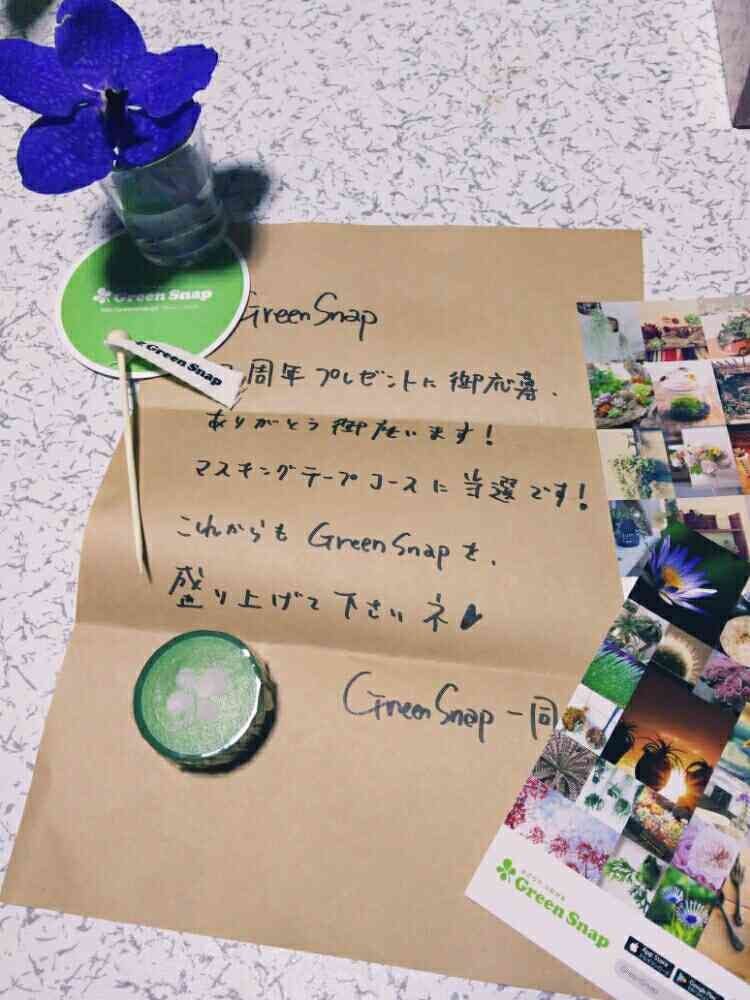 Green Snap
Green Snap
Green Snap
周年プレゼントに御応募、
ありがとう御座います!
マスキングテープコースに当選です!
これからもGreenSnapを、
盛り上げて下さいネ♥
GreenSnap一同
Green Snap
App Store
Google Play
GreenSnap